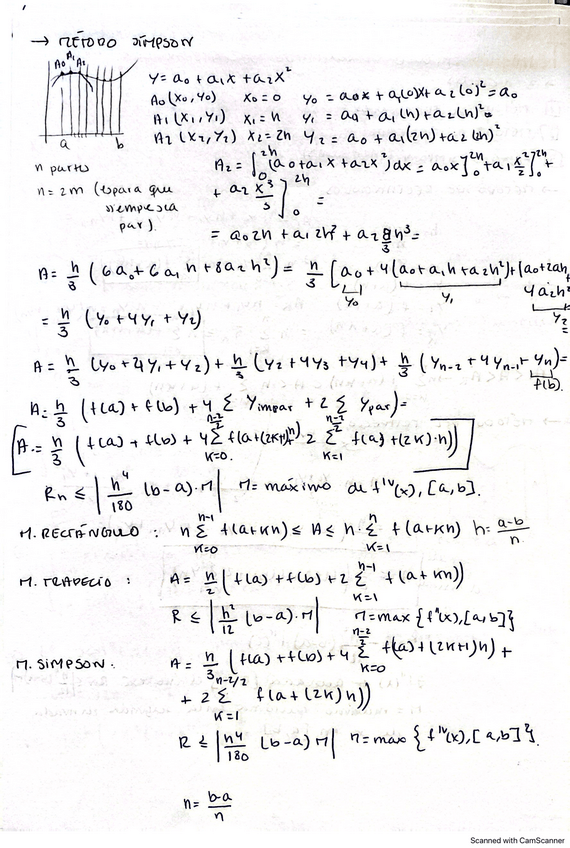 → MÉTODO SIMPSON
A₀ A₁ A₂
a b
y = a₀ + a₁x + a₂x²
A₀ (x₀, y₀) x₀ = 0 y₀ = a₀x + a₁(0)x + a₂(0)² = a₀
A₁ (x₁, y₁) x₁ = h y₁ = a₀ + a₁(h) + a₂(h)² =
A₂ (x₂, y₂) x₂ = 2h y₂ = a₀ + a₁(2h) + a₂(2h)²
n parts
n = 2m (espara que
siempre sea
par).
A₂ = ∫₀²ʰ (a₀ + a₁x + a₂x²) dx = a₀x]₀²ʰ + a₁ x²/2]₀²ʰ +
+ a₂ x³/3]₀²ʰ =
= a₀2h + a₁2h² + a₂ 8/3 h³ =
A = h/3 (6a₀ + 6a₁h + 8a₂h²) = h/3 [a₀ + 4(a₀ + a₁h + a₂h²) + (a₀ + 2ah +
4a₂h²
y₀ y₁ y₂
= h/3 (y₀ + 4y₁ + y₂)
A = h/3 (y₀ + 4y₁ + y₂) + h/3 (y₂ + 4y₃ + y₄) + h/3 (yₙ₋₂ + 4yₙ₋₁ + yₙ) =
f(b).
A = h/3 (f(a) + f(b) + 4 Σ yimpar + 2 Σ ypar) =
A = h/3 (f(a) + f(b) + 4 Σ (K=0, n-2/2) f(a+(2K+1)h) + 2 Σ (K=1, n-2/2) f(a) + (2K)·h))
Rn ≤ |h⁴/180 (b-a)·M| M = máximo de fᴵⱽ(x), [a,b].
M. RECTÁNGULO : h Σ (K=0, n-1) f(a+Kh) ≤ A ≤ h· Σ (K=1, n) f(a+Kh) h = a-b/n
M. TRAPECIO : A = h/2 (f(a) + f(b) + 2 Σ (K=1, n-1) f(a+Kh))
R ≤ |h²/12 (b-a)·M| M = max {f"(x), [a,b]}
M. SIMPSON : A = h/3 (f(a) + f(b) + 4 Σ (K=0, n-2/2) f(a) + (2K+1)h) +
+ 2 Σ (K=1, n-2/2) f(a + (2K)h))
R ≤ |h⁴/180 (b-a) M| M = max {fᴵⱽ(x), [a,b]}.
h = b-a/n
Scanned with CamScanner